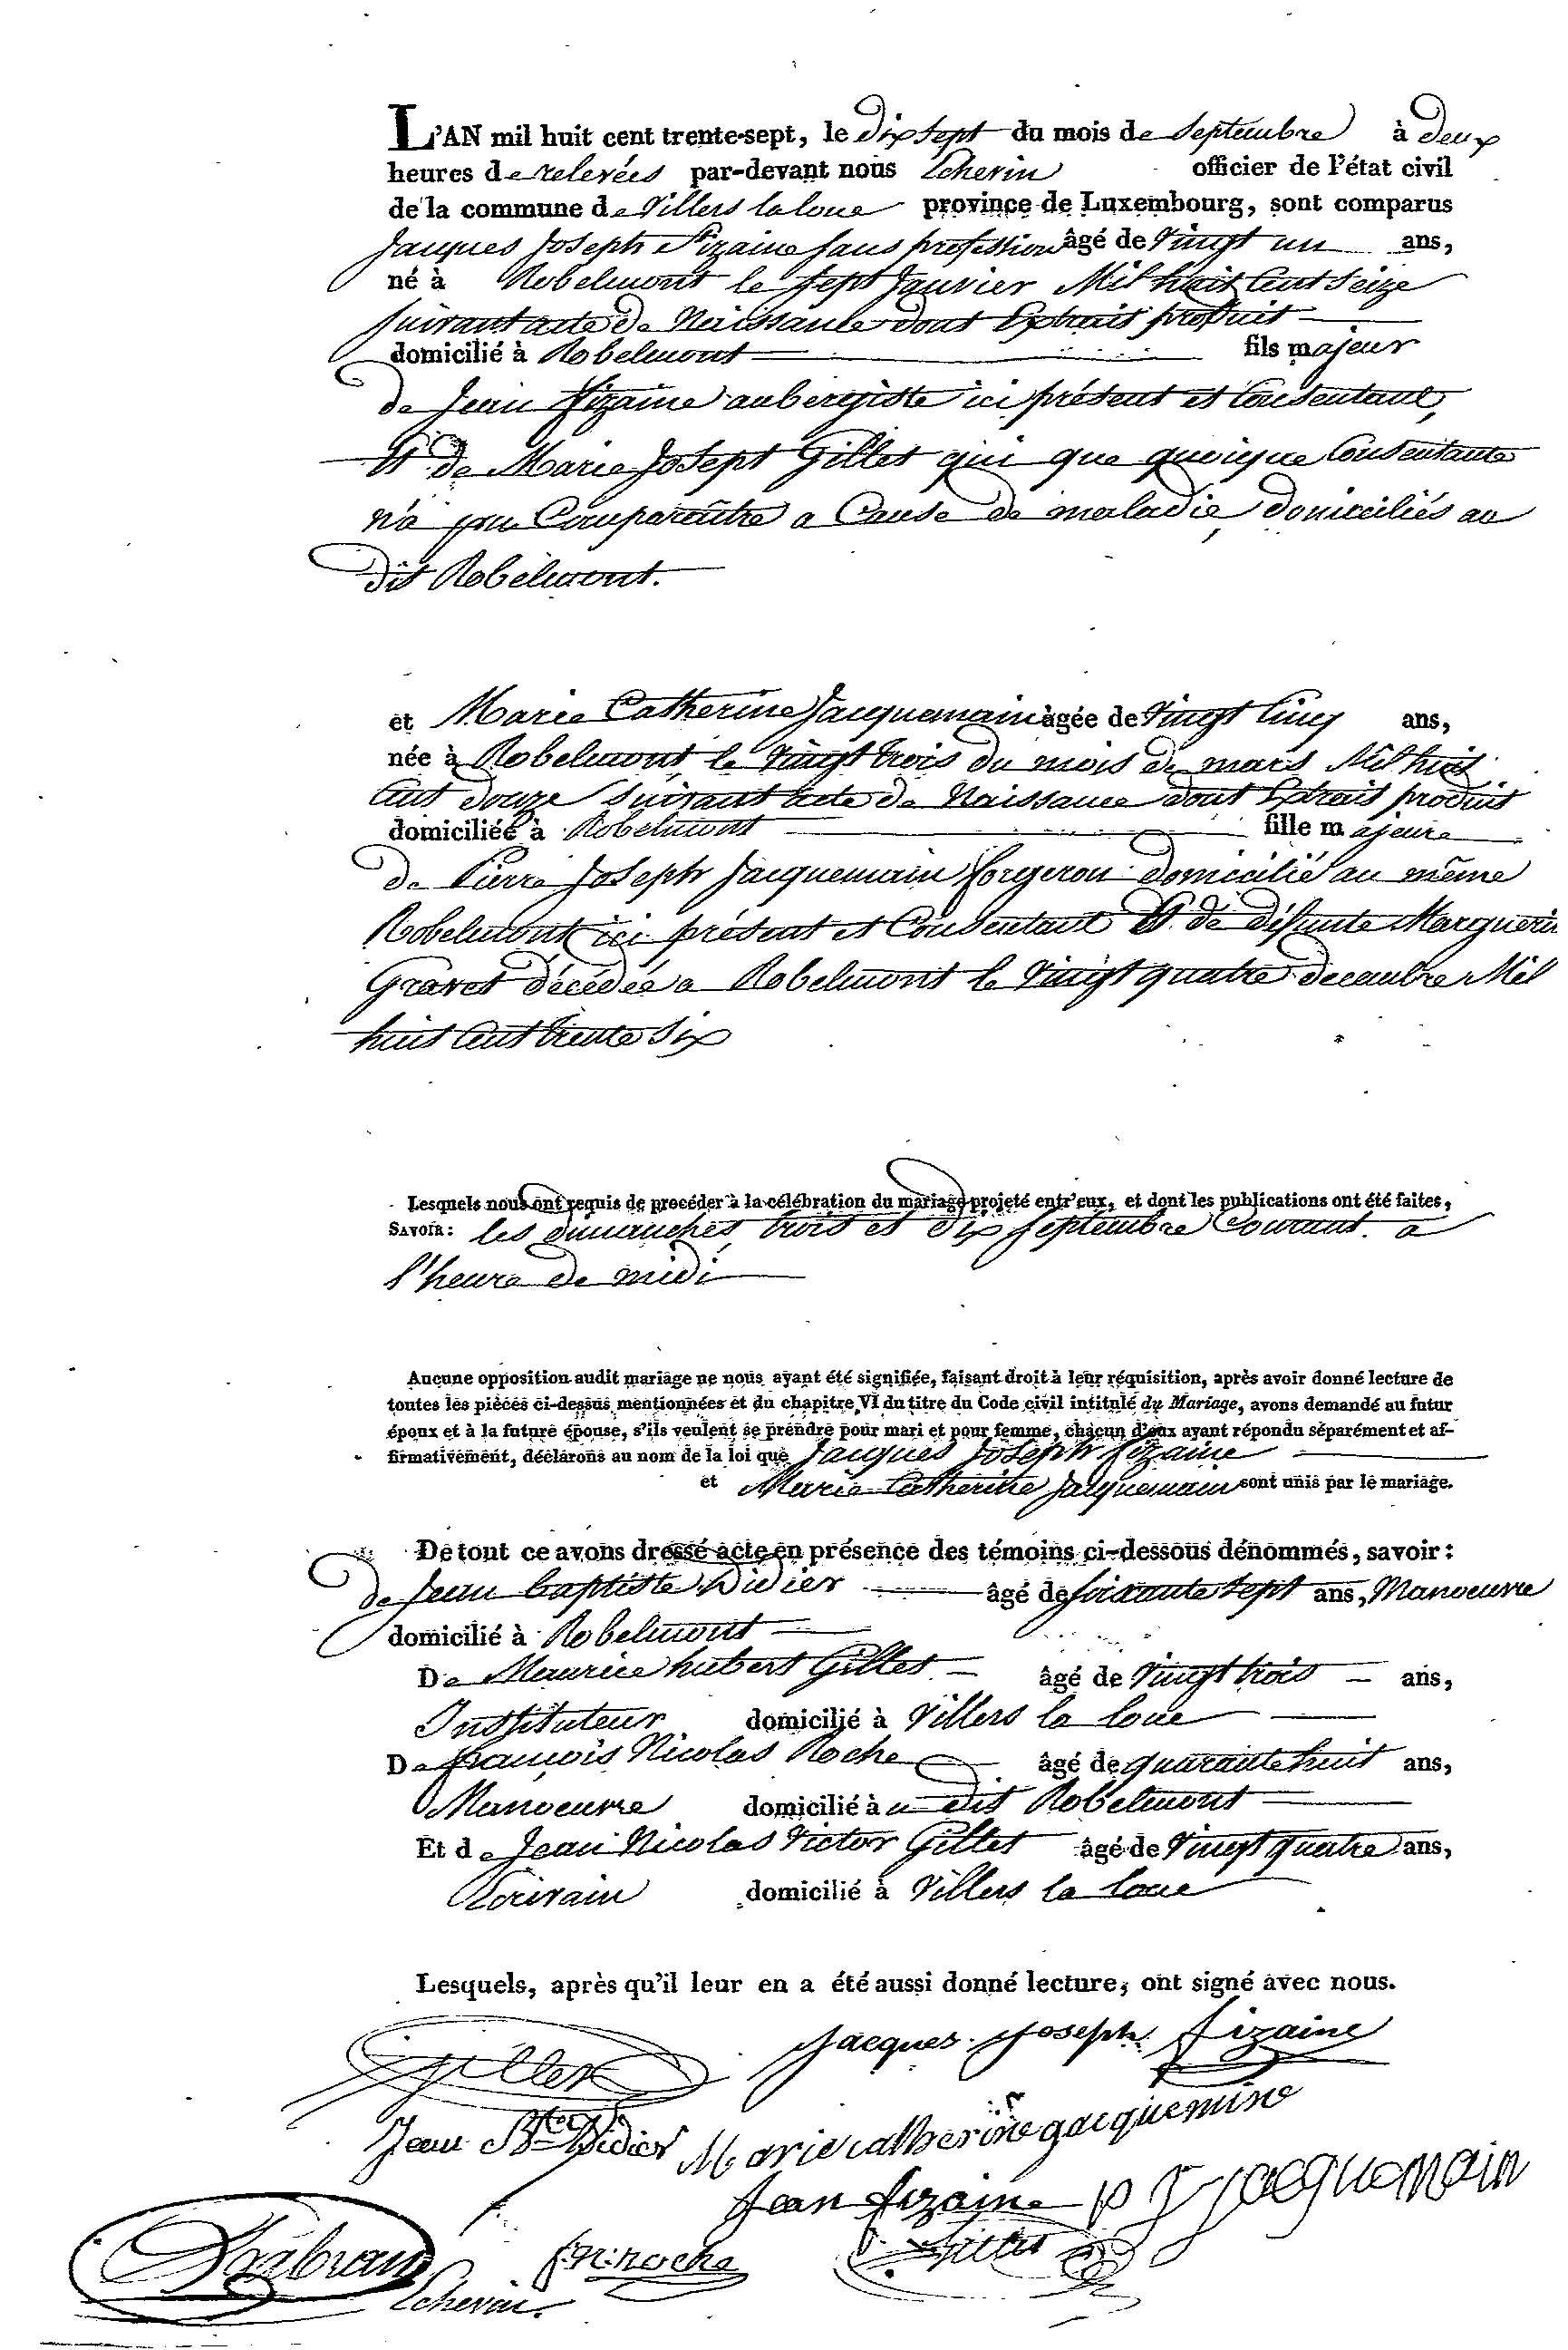 L'AN mil huit cent trente-sept, le dix sept du mois de Septembre à deux
heures de relevées par-devant nous Echevin officier de l'état civil
de la commune de Villers la loue province de Luxembourg, sont comparus
Jacques Joseph fizaine sans profession âgé de Vingt un ans,
né à Robelmont le sept Janvier Mil huit Cent Seize
suivant acte de Naissance dont Extrait produit
domicilié à Robelmont fils majeur
de Jean fizaine aubergiste ici présent et Consentant,
Et de Marie Josept Gillet qui que quoique Consentante
n'a pu Comparaître a Cause de maladie, domiciliés au
dit Robelmont.
et Marie Catherine Jacquemain âgée de Vingt Cinq ans,
née à Robelmont le Vingt trois du mois de mars Mil huit
Cent douze suivant acte de Naissance dont Extrait produit
domiciliée à Robelmont fille majeure
de Pierre Joseph Jacquemain forgeron domicilié au même
Robelmont ici présent et Consentant Et de défunte Marguerin
Gravet décédée a Robelmont le Vingt quatre decembre Mil
huit Cent trente Six
Lesquels nous ont requis de procéder à la célébration du mariage projeté entr'eux, et dont les publications ont été faites,
SAVOIR: les dimanches trois et dix septembre Courant. a
l'heure de midi
Aucune opposition audit mariage ne nous ayant été signifiée, faisant droit à leur réquisition, après avoir donné lecture de
toutes les pièces ci-dessus mentionnées et du chapitre VI du titre du Code civil intitulé du Mariage, avons demandé au futur
époux et à la future épouse, s'ils veulent se prendre pour mari et pour femme, chacun d'eux ayant répondu séparément et af-
firmativement, déclarons au nom de la loi que Jacques Joseph fizaine
et Marie Catherine Jacquemain sont unis par le mariage.
De tout ce avons dressé acte en présence des témoins ci-dessous dénommés, savoir:
de Jean baptiste Didier âgé de soixante sept ans, Manoeuvre
domicilié à Robelmont
De Maurice hubert Gillet âgé de Vingt trois ans,
Instituteur domicilié à Villers la loue
De françois Nicolas Roche âgé de quarante huit ans,
Manoeuvre domicilié au dit Robelmont
Et de Jean Nicolas Victor Gillet âgé de Vingt quatre ans,
Ecrivain domicilié à Villers la loue
Lesquels, après qu'il leur en a été aussi donné lecture, ont signé avec nous.
Gillet Jacques Joseph fizaine
Jean Bte Didier Marie catherine jacquemine
Jean fizaine p J jacquemain
f.n.roche Gillet
Echevin.